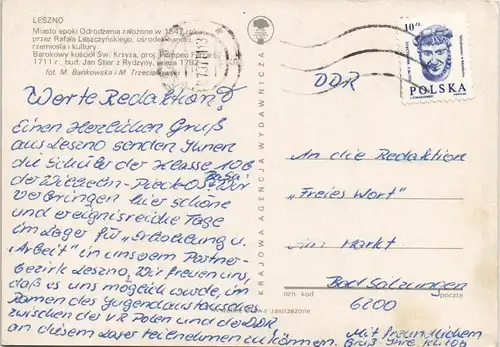 LESZNO
Miasto epoki Odrodzenia założone w 1547 roku
przez Rafała Leszczyńskiego, ośrodek handlu,
rzemiosła i kultury
Barokowy kościół Św. Krzyża, proj. Pompeo Ferrari
1711 r., bud. Jan Stier z Rydzyny, wieża 1782
fot. M. Bańkowska i M. Trzeciakowski
Werte Redaktion!
Einen Herzlichen Gruß
aus Leszno senden Ihnen
die Schüler der Klasse 10b
der Wilhelm-Pieck-OS BaSa. Wir
verbringen hier schöne
und ereignisreiche Tage
im Lager für „Erhohlung u.
Arbeit" in unserem Partner-
bezirk Leszno. Wir freuen uns,
daß es uns möglich wurde, im
Ramen des Jugendaustausches
zwischen der VR Polen und der DDR
an diesem Lager teilnehmen zu können.
KRAJOWA AGENCJA WYDAWNICZA
10 zł
POLSKA
DDR
An die Redaktion
„Freies Wort"
Am Markt
Bad Salzungen
6200
ozn. kod
poczta
zastrzeżone
Mit freundlichem
Gruß Ihre Kl. 10b